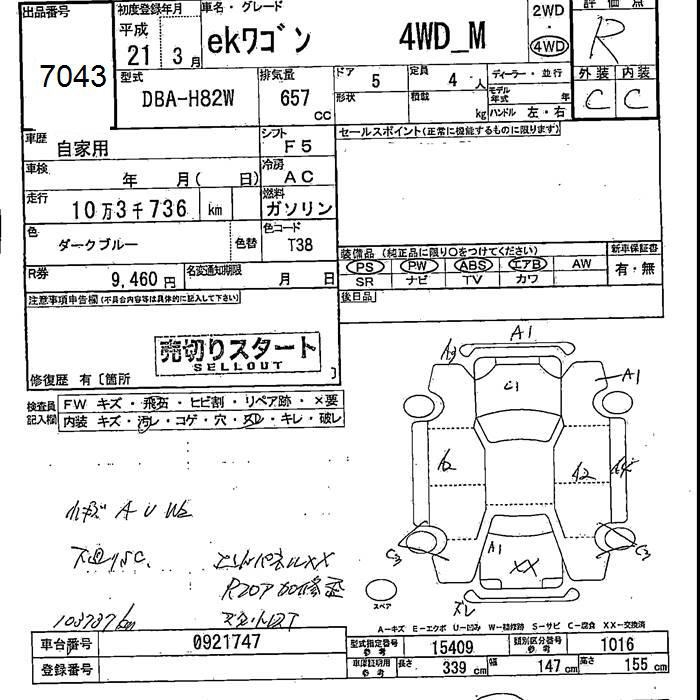 出品番号 初度登録年月 車名・グレード 2WD 評価点
平成 21 3月 ekワゴン 4WD_M ・ 4WD R
7043 型式 排気量 ドア 5 定員 4人 ディーラー・並行 外装 内装
DBA-H82W 657 cc 形状 積載 kg モデル年式 年 ハンドル 左・右 C C
車歴 自家用 シフト F5 セールスポイント(正常に機能するものに限ります)
車検 年 月( 日) 冷房 AC
走行 10万3千736 km 燃料 ガソリン
色 ダークブルー 色替 色コード T38 装備品 (純正品に限り○をつけてください) 新車保証書
PS PW ABS エアB AW 有・無
R券 9,460円 名変通知期限 月 日 SR ナビ TV カワ
注意事項申告欄(不具合内容等は具体的に記入して下さい) 後日品
売切りスタート
SELLOUT
修復歴 有〔箇所 〕
検査員記入欄 FW キズ・飛石・ヒビ割・リペア跡・×要
内装 キズ・汚レ・コゲ・穴・スレ・キレ・破レ
A1
A1
C1
A2
A1
XX
C3 C3
小キズ A U W2
下廻りSC.
103737km
スペア
A-キズ E-エクボ U-凹み W-補修跡 S-サビ C-腐食 XX-交換済
車台番号 0921747 型式指定番号 参考 15409 類別区分番号 参考 1016
登録番号 車庫証明用 参考 長さ 339cm 幅 147cm 高さ 155cm